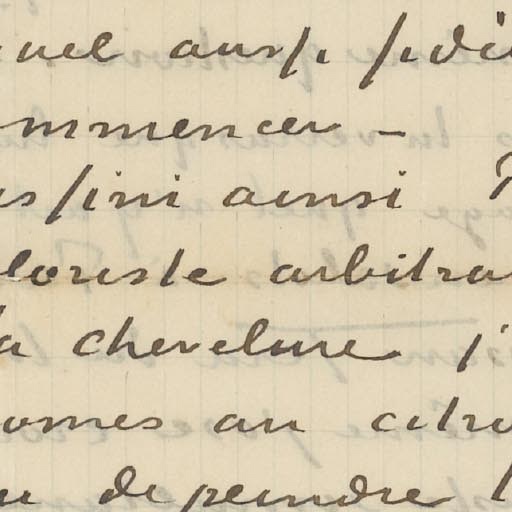 uel aussi fidè
mmencer –
as fini ainsi P
loriste arbitra
la chevelure j'
omes au citro
u de peindre l